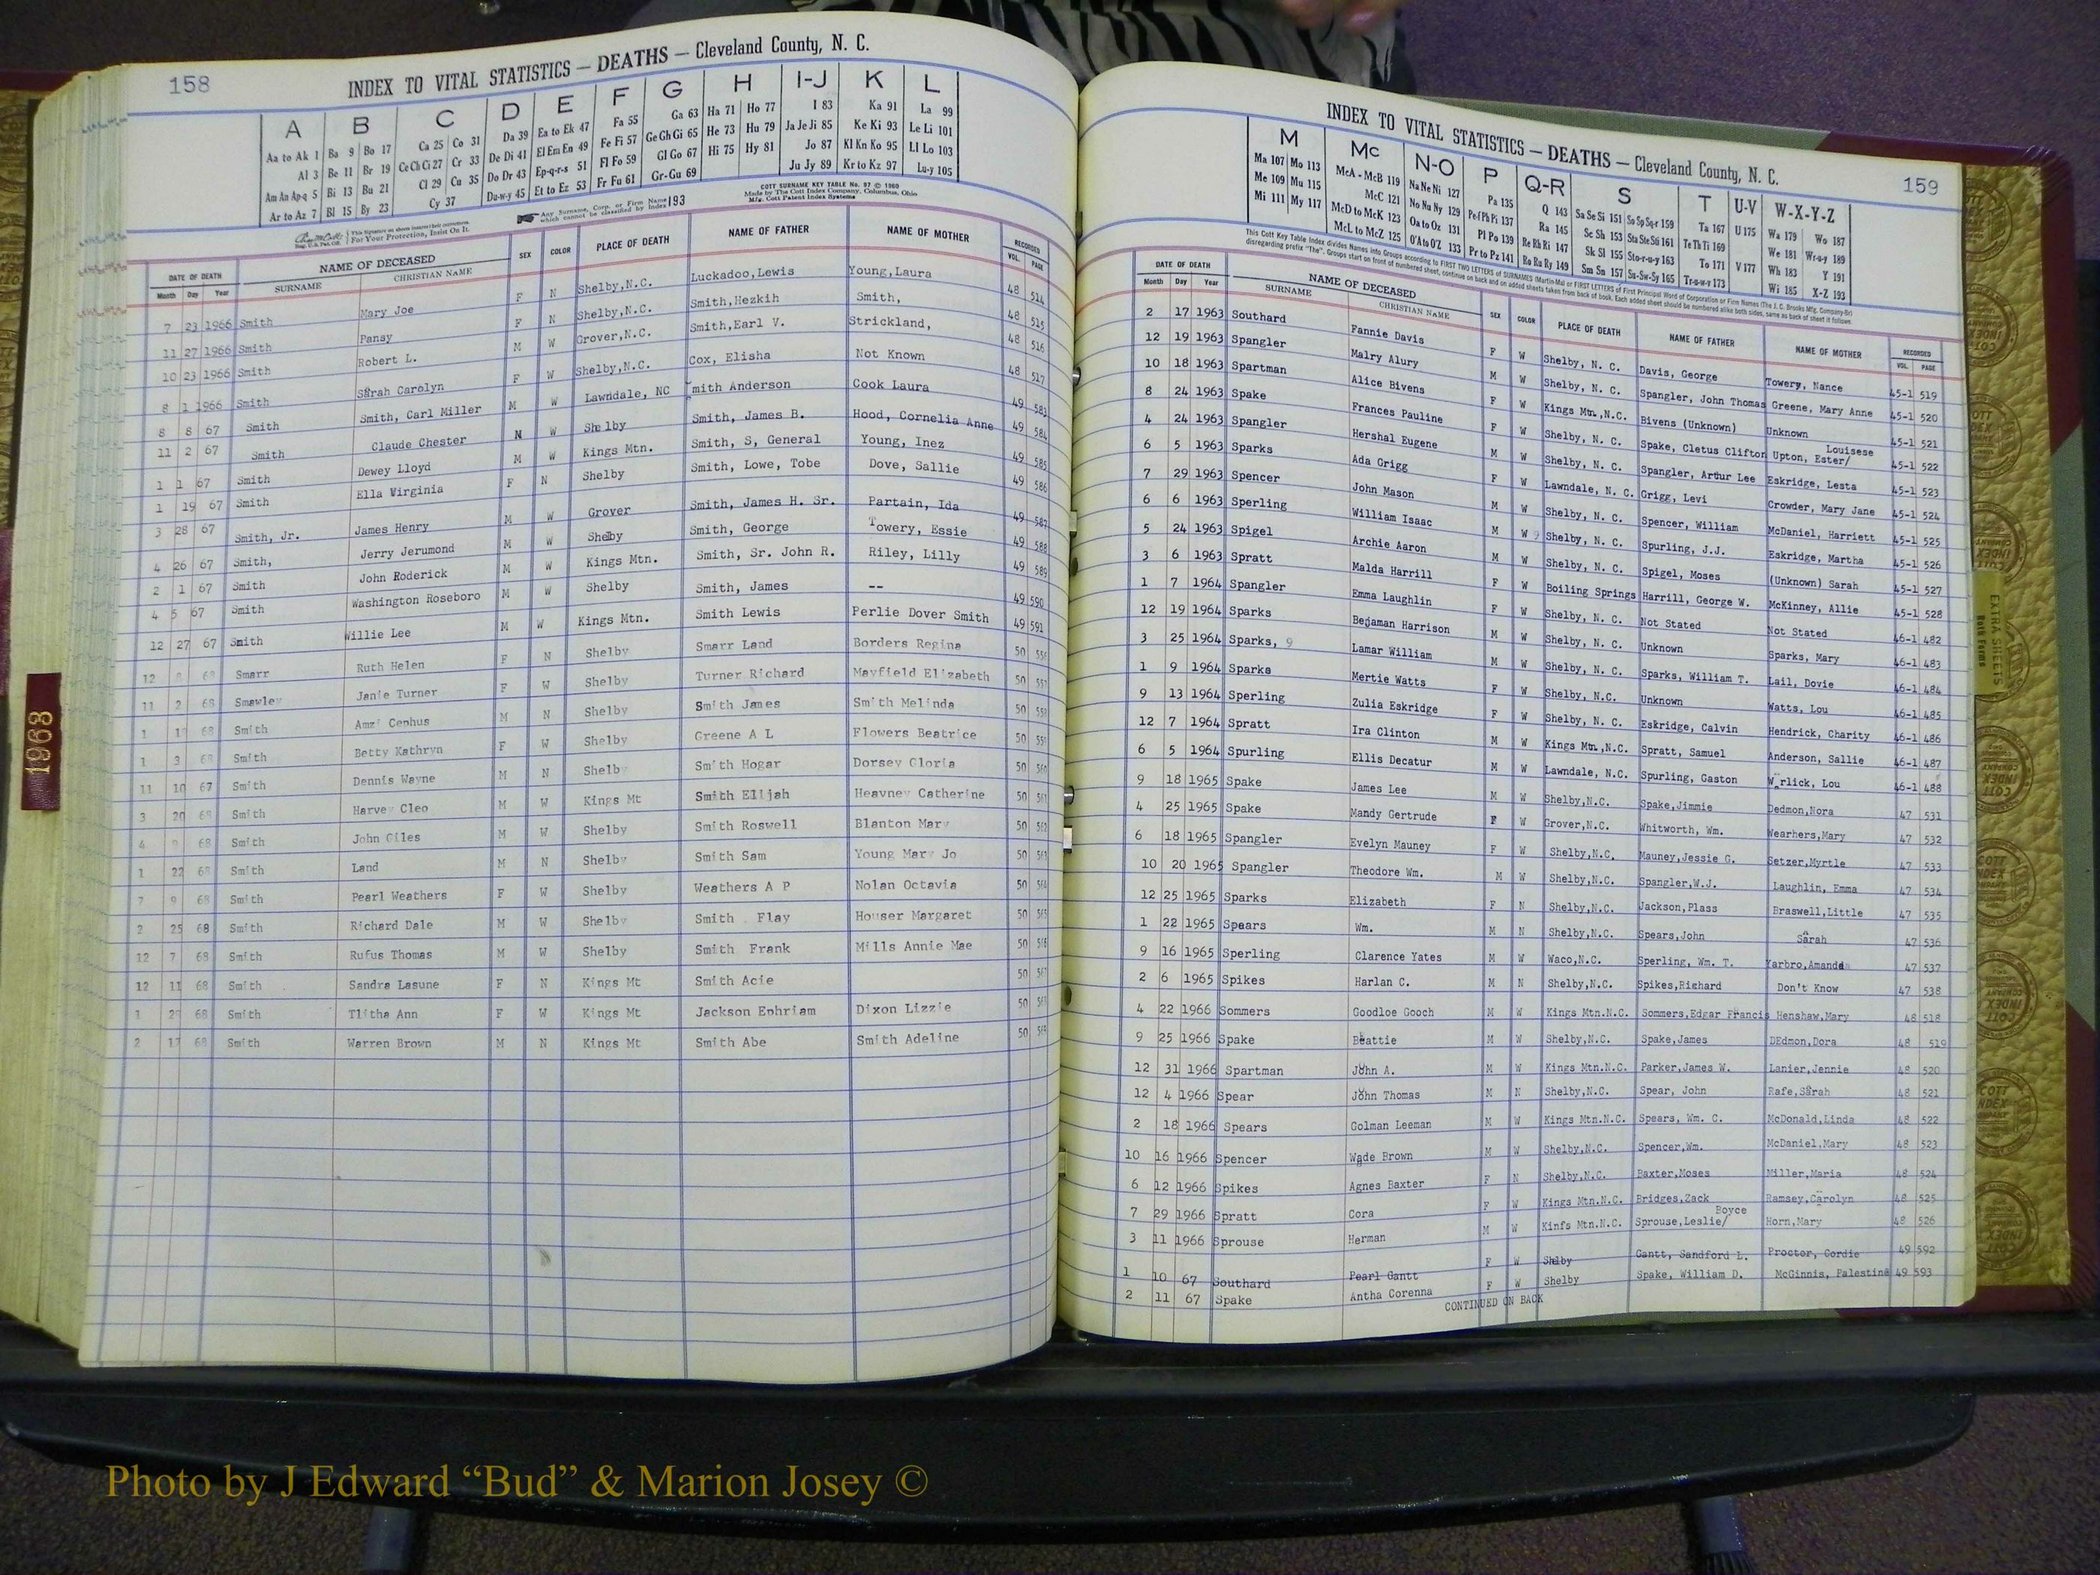 158
INDEX TO VITAL STATISTICS — DEATHS — Cleveland County, N. C.
A B C D E F G H I-J K L
Aa to Ak 1 Ba 9 Bo 17 Ca 25 Co 31 Da 39 Ea to Ek 47 Fa 55 Ga 63 Ha 71 Ho 77 I 83 Ka 91 La 99
Al 3 Be 11 Br 19 Ce Ch Ci 27 Cr 33 De Di 41 El Em En 49 Fe Fi 57 Ge Gh Gi 65 He 73 Hu 79 Ja Je Ji 85 Ke Ki 93 Le Li 101
Am An Ap-q 5 Bi 13 Bu 21 Cl 29 Cu 35 Do Dr 43 Ep-q-r-s 51 Fl Fo 59 Gl Go 67 Hi 75 Hy 81 Jo 87 Kl Kn Ko 95 Ll Lo 103
Ar to Az 7 Bl 15 By 23 Cy 37 Du-w-y 45 Et to Ez 53 Fr Fu 61 Gr-Gu 69 Ju Jy 89 Kr to Kz 97 Lu-y 105
Any Surname, Corp. or Firm Name which cannot be classified by Index 193
COTT SURNAME KEY TABLE No. 97 © 1960
Made by The Cott Index Company, Columbus, Ohio
Mfg. Cott Patent Index Systems
For Your Protection, Insist On It.
DATE OF DEATH NAME OF DECEASED SEX COLOR PLACE OF DEATH NAME OF FATHER NAME OF MOTHER RECORDED
Month Day Year SURNAME CHRISTIAN NAME VOL. PAGE
7 23 1966 Smith Mary Joe F N Shelby,N.C. Luckadoo,Lewis Young,Laura 48 514
11 27 1966 Smith Pansy F N Shelby,N.C. Smith,Hezkih Smith, 48 515
10 23 1966 Smith Robert L. M W Grover,N.C. Smith,Earl V. Strickland, 48 516
8 1 1966 Smith Sarah Carolyn F W Shelby,N.C. Cox, Elisha Not Known 48 517
8 8 67 Smith Smith, Carl Miller M W Lawndale, NC Smith Anderson Cook Laura 49 583
11 2 67 Smith Claude Chester N W Shelby Smith, James B. Hood, Cornelia Anne 49 584
1 1 67 Smith Dewey Lloyd M W Kings Mtn. Smith, S, General Young, Inez 49 585
1 19 67 Smith Ella Virginia F N Shelby Smith, Lowe, Tobe Dove, Sallie 49 586
3 28 67 Smith, Jr. James Henry M W Grover Smith, James H. Sr. Partain, Ida 49 587
4 26 67 Smith, Jerry Jerumond M W Shelby Smith, George Towery, Essie 49 588
2 1 67 Smith John Roderick M W Kings Mtn. Smith, Sr. John R. Riley, Lilly 49 589
4 5 67 Smith Washington Roseboro M W Shelby Smith, James -- 49 590
12 27 67 Smith Willie Lee M W Kings Mtn. Smith Lewis Perlie Dover Smith 49 591
12 68 Smarr Ruth Helen F N Shelby Smarr Land Borders Regina 50 556
11 2 68 Smawley Janie Turner F W Shelby Turner Richard Mayfield Elizabeth 50 557
1 68 Smith Amzi Cephus M N Shelby Smith James Smith Melinda 50 558
1 3 68 Smith Betty Kathryn F W Shelby Greene A L Flowers Beatrice 50 559
11 10 67 Smith Dennis Wayne M N Shelby Smith Hogar Dorsey Gloria 50 560
3 20 68 Smith Harvey Cleo M W Kings Mt Smith Elijah Heavney Catherine 50 561
4 68 Smith John Giles M W Shelby Smith Roswell Blanton Mary 50 562
1 22 68 Smith Land M N Shelby Smith Sam Young Mary Jo 50 563
7 9 68 Smith Pearl Weathers F W Shelby Weathers A P Nolan Octavia 50 564
2 25 68 Smith Richard Dale M W Shelby Smith Flay Houser Margaret 50 565
12 7 68 Smith Rufus Thomas M W Shelby Smith Frank Mills Annie Mae 50 566
12 11 68 Smith Sandra Lasune F N Kings Mt Smith Acie 50 567
1 29 68 Smith Tlitha Ann F W Kings Mt Jackson Ephriam Dixon Lizzie 50 568
2 17 68 Smith Warren Brown M N Kings Mt Smith Abe Smith Adeline 50 569
1968
159
INDEX TO VITAL STATISTICS — DEATHS — Cleveland County, N. C.
M Mc N-O P Q-R S T U-V W-X-Y-Z
Ma 107 Mo 113 McA - McB 119 Na Ne Ni 127 Pa 135 Q 143 Sa Se Si 151 So Sp Sq-r 159 Ta 167 U 175 Wa 179 Wo 187
Me 109 Mu 115 McC 121 No Nu Ny 129 Pe-f Ph Pi 137 Ra 145 Sc Sh 153 Sta Ste Sti 161 Te Th Ti 169 We 181 Wr-u-y 189
Mi 111 My 117 McD to McK 123 Oa to Oz 131 Pl Po 139 Re Rh Ri 147 Sk Sl 155 Sto-r-u-y 163 To 171 V 177 Wh 183 Y 191
McL to McZ 125 O'A to O'Z 133 Pr to Pz 141 Ro Ru Ry 149 Sm Sn 157 Su-Sw-Sy 165 Tr-u-w-y 173 Wi 185 X-Z 193
DATE OF DEATH NAME OF DECEASED SEX COLOR PLACE OF DEATH NAME OF FATHER NAME OF MOTHER RECORDED
Month Day Year SURNAME CHRISTIAN NAME VOL. PAGE
2 17 1963 Southard Fannie Davis F W Shelby, N. C. Davis, George Towery, Nance 45-1 519
12 19 1963 Spangler Malry Alury M W Shelby, N. C. Spangler, John Thomas Greene, Mary Anne 45-1 520
10 18 1963 Spartman Alice Bivens F W Kings Mtn.,N.C. Bivens (Unknown) Unknown 45-1 521
8 24 1963 Spake Frances Pauline F W Shelby, N. C. Spake, Cletus Clifton Upton, Ester/ Louisese 45-1 522
4 24 1963 Spangler Hershal Eugene M W Shelby, N. C. Spangler, Arthur Lee Eskridge, Lesta 45-1 523
6 5 1963 Sparks Ada Grigg F W Lawndale, N. C. Grigg, Levi Crowder, Mary Jane 45-1 524
7 29 1963 Spencer John Mason M W Shelby, N. C. Spencer, William McDaniel, Harriett 45-1 525
6 6 1963 Sperling William Isaac M W 9 Shelby, N. C. Spurling, J.J. Eskridge, Martha 45-1 526
5 24 1963 Spigel Archie Aaron M W Shelby, N. C. Spigel, Moses (Unknown) Sarah 45-1 527
3 6 1963 Spratt Malda Harrill F W Boiling Springs Harrill, George W. McKinney, Allie 45-1 528
1 7 1964 Spangler Emma Laughlin F W Shelby, N. C. Not Stated Not Stated 46-1 482
12 19 1964 Sparks Bejaman Harrison M W Shelby, N. C. Unknown Sparks, Mary 46-1 483
3 25 1964 Sparks, 9 Lamar William M W Shelby, N. C. Sparks, William T. Lail, Dovie 46-1 484
1 9 1964 Sparks Mertie Watts F W Shelby, N.C. Unknown Watts, Lou 46-1 485
9 13 1964 Sperling Zulia Eskridge F W Shelby, N. C. Eskridge, Calvin Hendrick, Charity 46-1 486
12 7 1964 Spratt Ira Clinton M W Kings Mtn.,N.C. Spratt, Samuel Anderson, Sallie 46-1 487
6 5 1964 Spurling Ellis Decatur M W Lawndale, N.C. Spurling, Gaston Wirlick, Lou 46-1 488
9 18 1965 Spake James Lee M W Shelby,N.C. Spake,Jimmie Dedmon,Nora 47 531
4 25 1965 Spake Mandy Gertrude F W Grover,N.C. Whitworth, Wm. Wearhers,Mary 47 532
6 18 1965 Spangler Evelyn Mauney F W Shelby,N.C. Mauney,Jessie G. Setzer,Myrtle 47 533
10 20 1965 Spangler Theodore Wm. M W Shelby,N.C. Spangler,W.J. Laughlin, Emma 47 534
12 25 1965 Sparks Elizabeth F N Shelby,N.C. Jackson,Plass Braswell,Little 47 535
1 22 1965 Spears Wm. M N Shelby,N.C. Spears,John Sarah 47 536
9 16 1965 Sperling Clarence Yates M W Waco,N.C. Sperling, Wm. T. Yarbro,Amanda 47 537
2 6 1965 Spikes Harlan C. M N Shelby,N.C. Spikes,Righard Don't Know 47 538
4 22 1966 Sommers Goodloe Gooch M W Kings Mtn.N.C. Sommers,Edgar Francis Henshaw,Mary 48 518
9 25 1966 Spake Beattie M W Shelby,N.C. Spake,James DEdmon,Dora 48 519
12 31 1966 Spartman John A. M W Kings Mtn.N.C. Parker,James W. Lanier,Jennie 48 520
12 4 1966 Spear John Thomas M N Shelby,N.C. Spear, John Rafe,Sarah 48 521
2 18 1966 Spears Golman Leeman M W Kings Mtn.N.C. Spears, Wm. C. McDonald,Linda 48 522
10 16 1966 Spencer Wade Brown M W Shelby,N.C. Spencer,Wm. McDaniel,Mary 48 523
6 12 1966 Spikes Agnes Baxter F N Shelby,N.C. Baxter,Moses Miller,Maria 48 524
7 29 1966 Spratt Cora F W Kings Mtn.N.C. Bridges,Zack Ramsey,Carolyn 48 525
3 11 1966 Sprouse Herman M W Kinfs Mtn.N.C. Sprouse,Leslie/ Boyce Horn,Mary 48 526
1 10 67 Southard Pearl Gantt F W Shelby Gantt, Sandford L. Proctor, Cordie 49 592
2 11 67 Spake Antha Corenna F W Shelby Spake, William D. McGinnis, Palestine 49 593
CONTINUED ON BACK
EXTRA SHEETS
Both Forms
Photo by J Edward “Bud” & Marion Josey ©